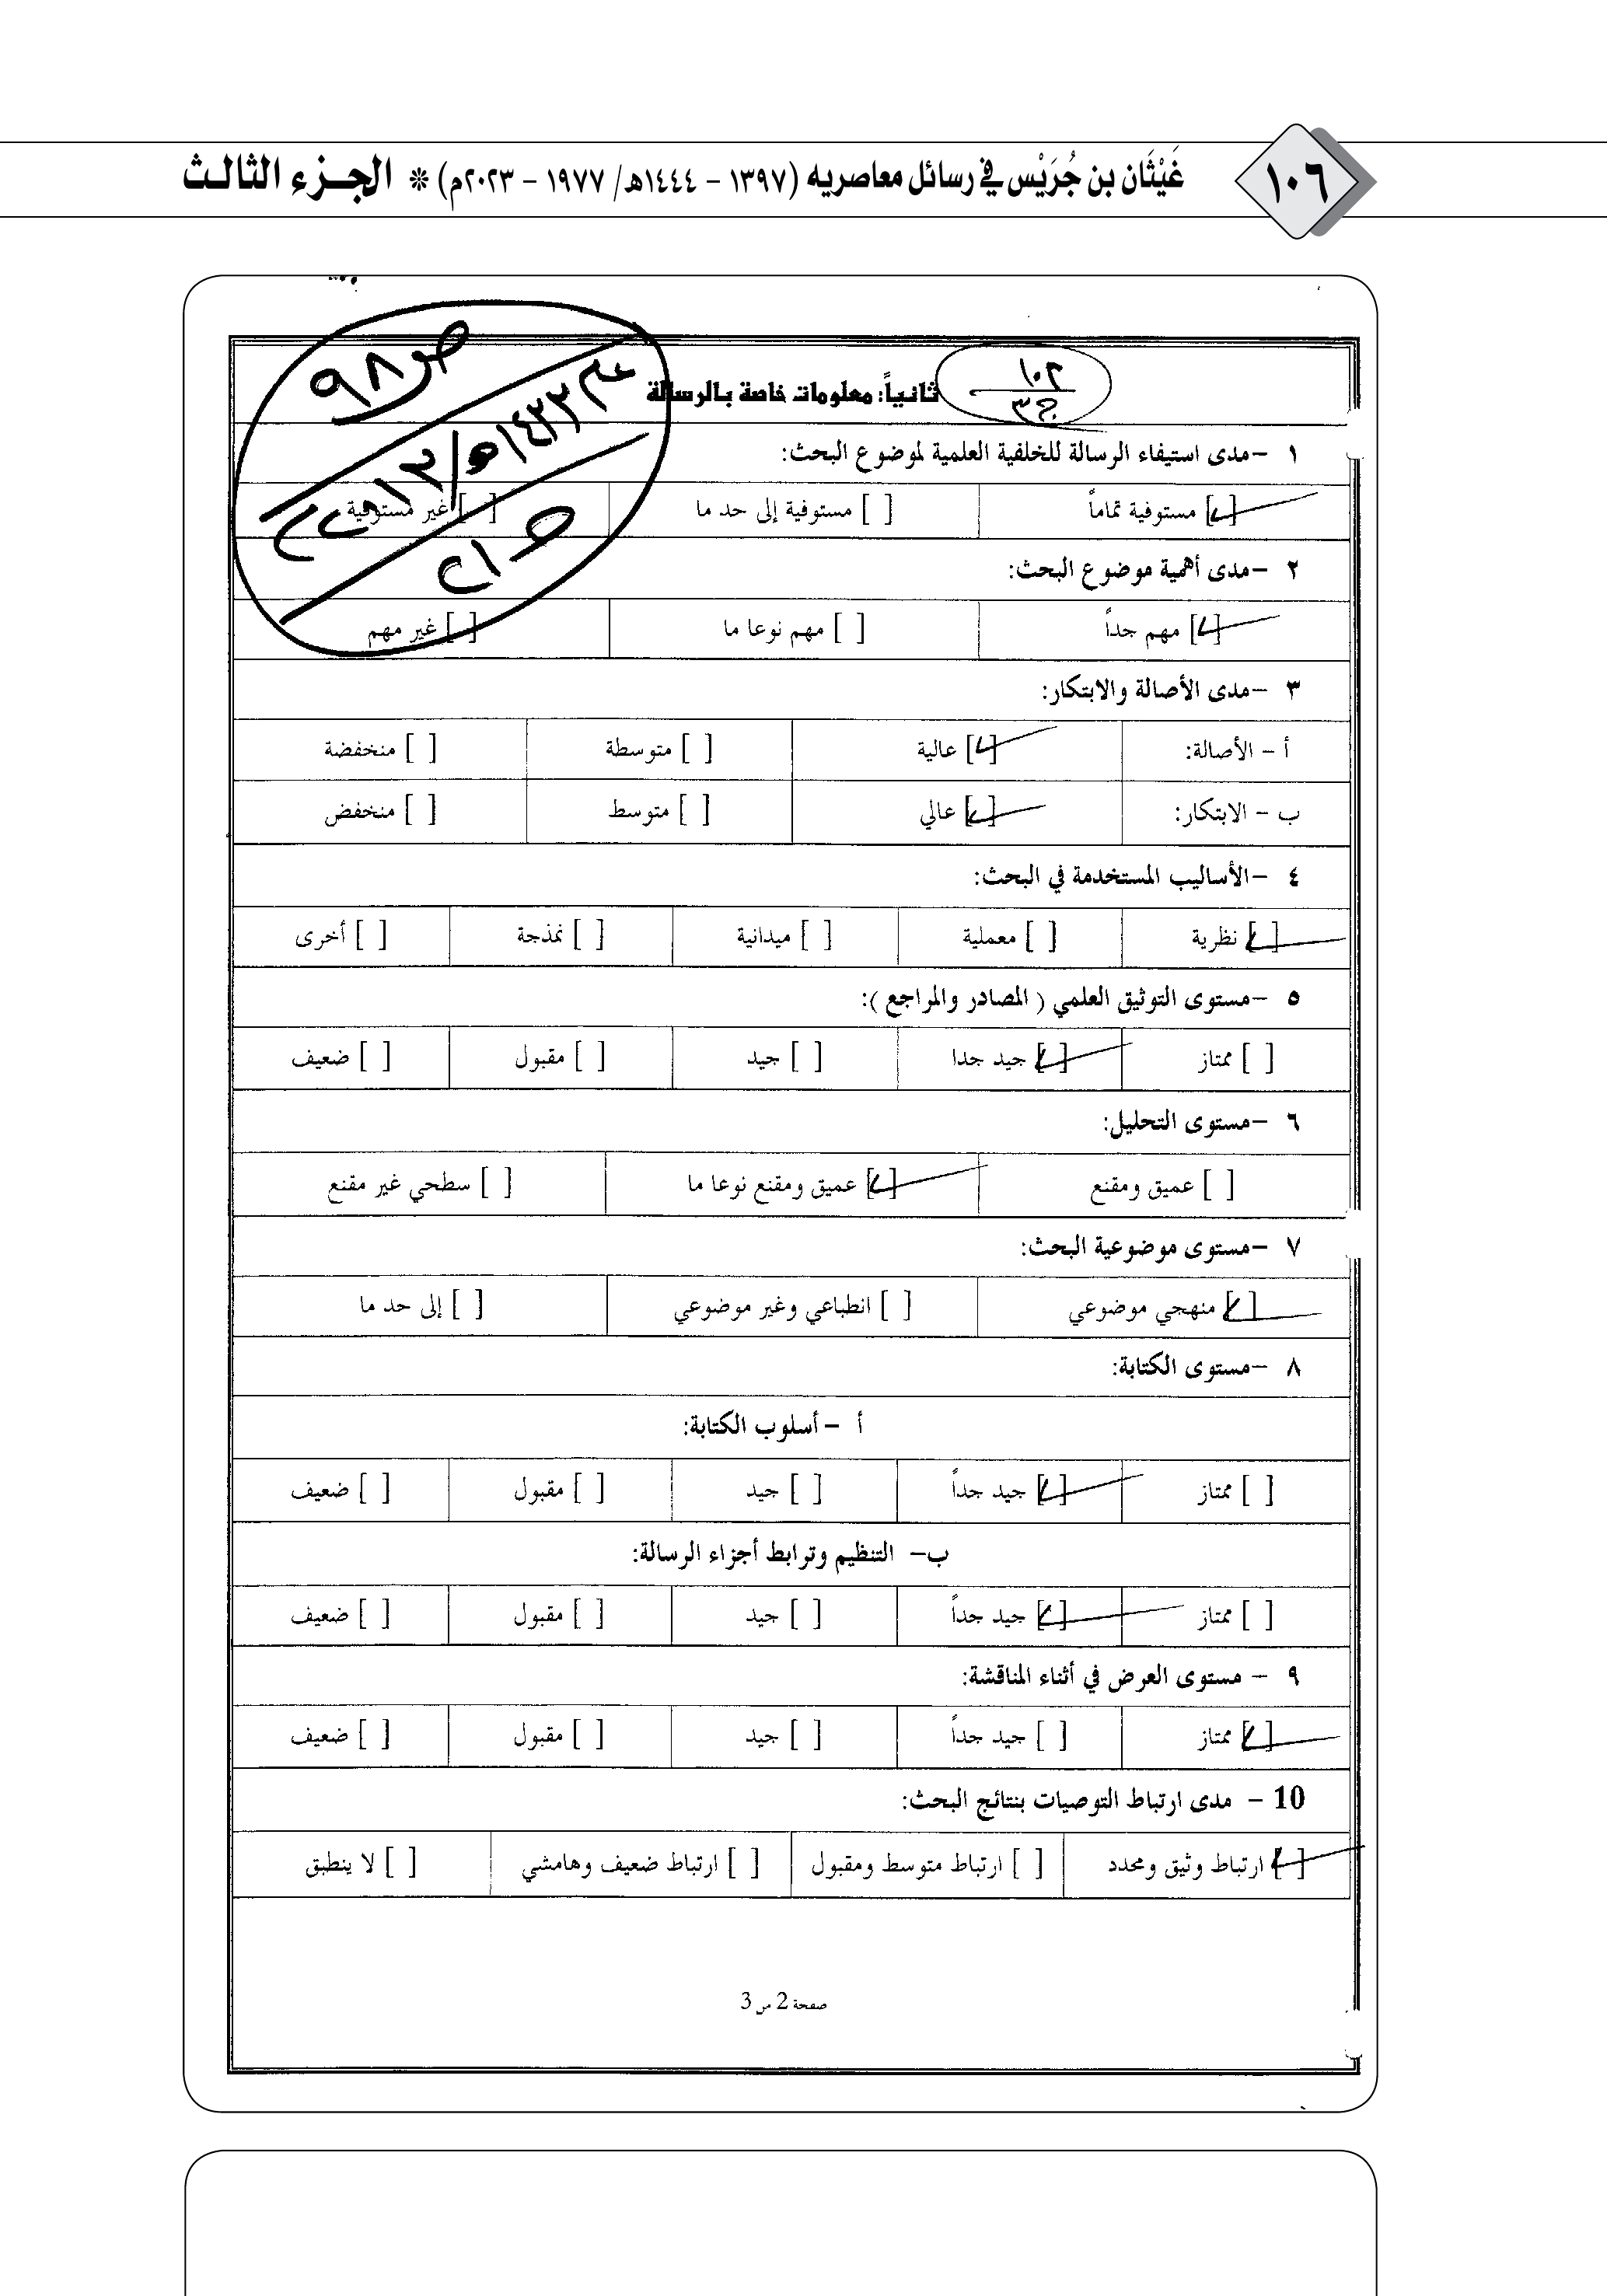 ١٠٦
غَيْثَان بن جُرَيْس في رسائل معاصريه (١٣٩٧ - ١٤٤٤هـ/ ١٩٧٧ - ٢٠٢٣م) * الجزء الثالث
ص ٩٨
عام ١٤٣٣هـ/٢٠١٢م
١٠٢
ج٣
ثانياً: معلومات خاصة بالرسالة
١ -مدى استيفاء الرسالة للخلفية العلمية لموضوع البحث:
[ ] مستوفية تماماً [ ] مستوفية إلى حد ما [ ] غير مستوفية
٢ -مدى أهمية موضوع البحث:
[ ] مهم جداً [ ] مهم نوعا ما [ ] غير مهم
٣ -مدى الأصالة والابتكار:
أ - الأصالة: [ ] عالية [ ] متوسطة [ ] منخفضة
ب - الابتكار: [ ] عالي [ ] متوسط [ ] منخفض
٤ -الأساليب المستخدمة في البحث:
[ ] نظرية [ ] معملية [ ] ميدانية [ ] نمذجة [ ] أخرى
٥ -مستوى التوثيق العلمي ( المصادر والمراجع ):
[ ] ممتاز [ ] جيد جدا [ ] جيد [ ] مقبول [ ] ضعيف
٦ -مستوى التحليل:
[ ] عميق ومقنع [ ] عميق ومقنع نوعا ما [ ] سطحي غير مقنع
٧ -مستوى موضوعية البحث:
[ ] منهجي موضوعي [ ] انطباعي وغير موضوعي [ ] إلى حد ما
٨ -مستوى الكتابة:
أ - أسلوب الكتابة:
[ ] ممتاز [ ] جيد جداً [ ] جيد [ ] مقبول [ ] ضعيف
ب- التنظيم وترابط أجزاء الرسالة:
[ ] ممتاز [ ] جيد جداً [ ] جيد [ ] مقبول [ ] ضعيف
٩ - مستوى العرض في أثناء المناقشة:
[ ] ممتاز [ ] جيد جداً [ ] جيد [ ] مقبول [ ] ضعيف
10 - مدى ارتباط التوصيات بنتائج البحث:
[ ] ارتباط وثيق ومحدد [ ] ارتباط متوسط ومقبول [ ] ارتباط ضعيف وهامشي [ ] لا ينطبق
صفحة 2 من 3